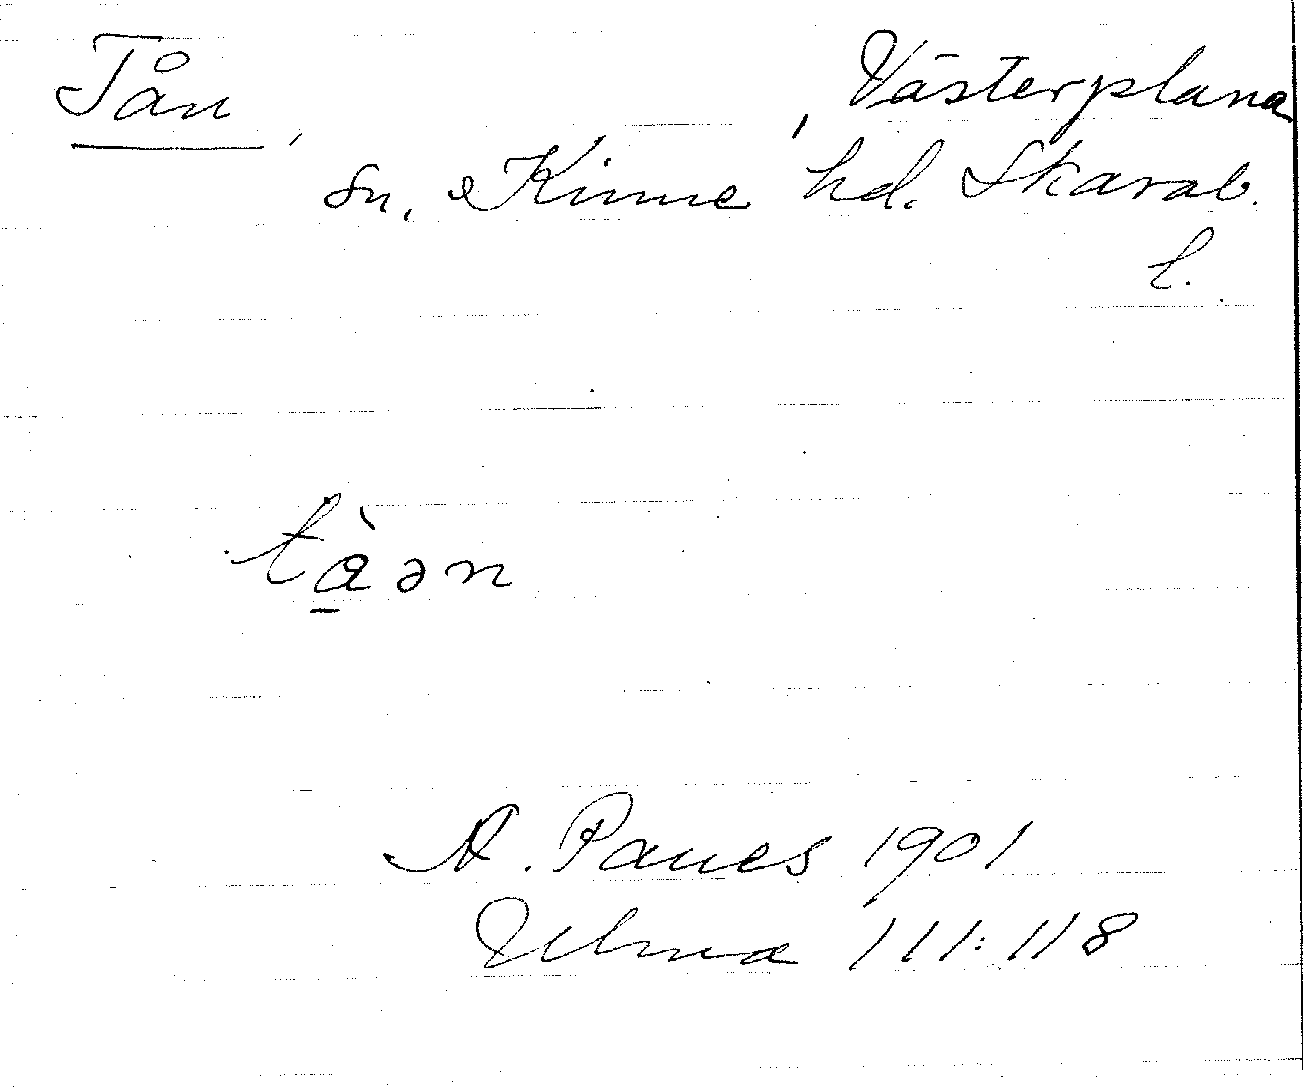 Tån, , Västerplana
sn, Kinne hd. Skarab.
l.
tὰ̠ən
A. Paues 1901
Ulma 111:118